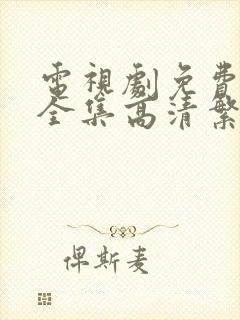 電視劇免費
全集高清繁
俾斯麦